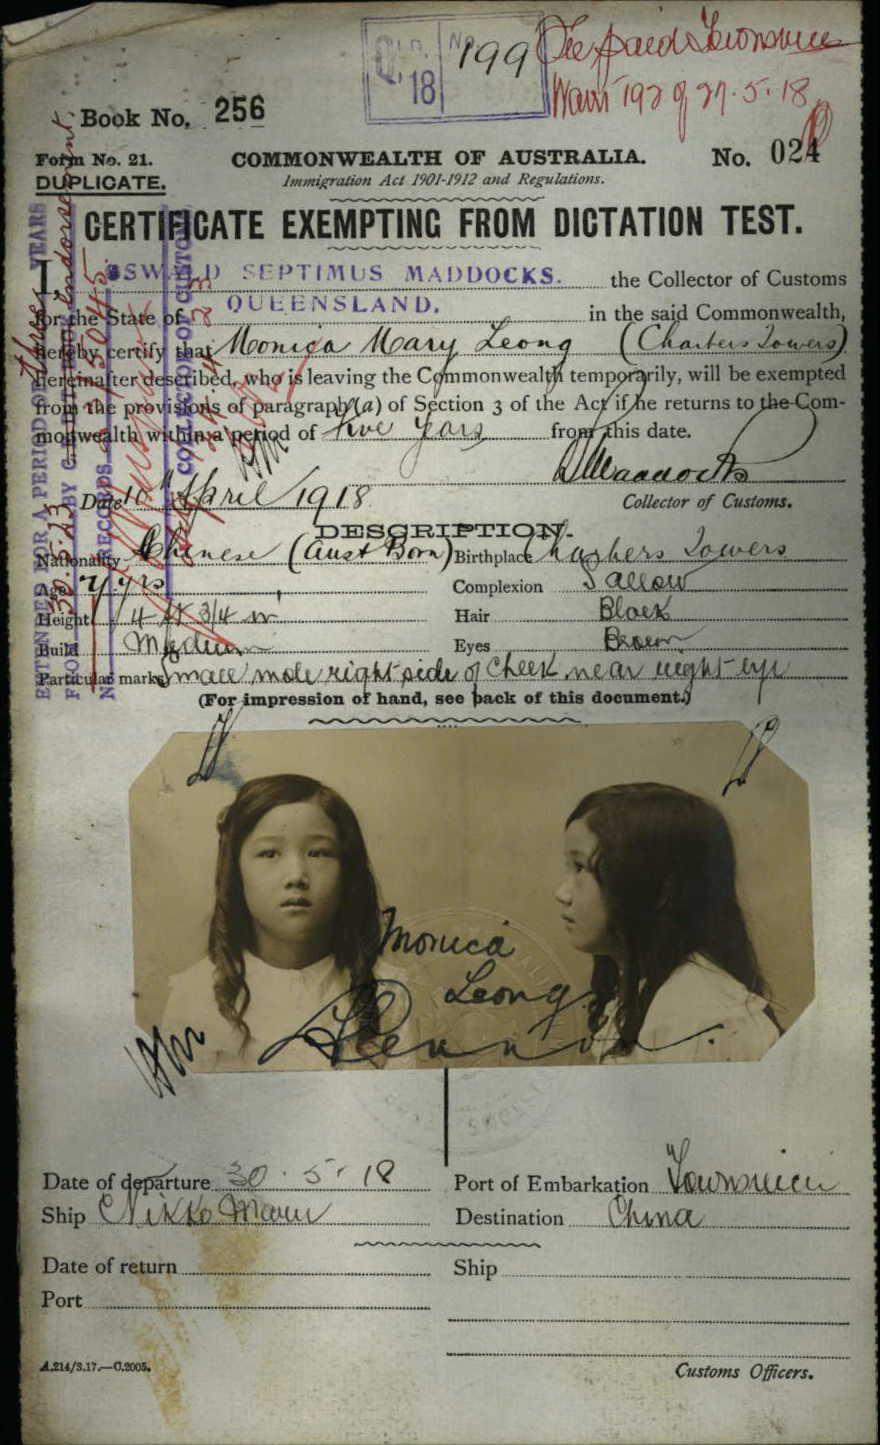 Qld. No. 199 Fee paid Townsville
'18 Warrt 192 of 27.5.18
Book No. 256
Form No. 21. COMMONWEALTH OF AUSTRALIA. No. 024
DUPLICATE. Immigration Act 1901-1912 and Regulations.
CERTIFICATE EXEMPTING FROM DICTATION TEST.
I, OSWALD SEPTIMUS MADDOCKS. the Collector of Customs
for the State of QUEENSLAND. in the said Commonwealth,
hereby certify that Monica Mary Leong (Charters Towers)
hereinafter described, who is leaving the Commonwealth temporarily, will be exempted
from the provisions of paragraph (a) of Section 3 of the Act if he returns to the Com-
monwealth within a period of five years from this date.
OSMaddocks
Date 10 April 1918 Collector of Customs.
DESCRIPTION.
Nationality Chinese (Aust Born) Birthplace Charters Towers
Age 7 yrs Complexion Sallow
Height 4 ft 3/4 in Hair Black
Build Medium Eyes Brown
Particular marks Small mole right side of cheek near right eye
(For impression of hand, see back of this document.)
Monica
Leong
Date of departure 30.5.18 Port of Embarkation Townsville
Ship Nikko Maru Destination China
Date of return Ship
Port
A.214/3.17.—C.2005. Customs Officers.
EXTENDED FOR A PERIOD OF three YEARS
FROM 30.5.23 BY C.
RECORDS
COLLECTOR OF CUSTOMS